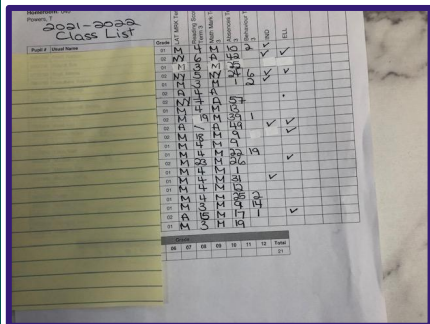 Powers, T
2021-2022
Class List
Pupil # Usual Name Grade LAT MRK Reading Score Term 3 Math Mark Absences Behaviour IND ELL
01 M 4 M 10 2 ✓
02 6 A 42 ✓ ✓
01 M 3 M
02 5 24 6 ✓ ✓
01 M 3 M 1 2
02 A 4 A
02 57
01 M 4 M 13
02 M 19 M 39 1 ✓
02 A / A 49 ✓ ✓
01 M 18 M 9 ✓
01 M 4 M 9
01 M 4 M 22 19
02 M 23 M 26 ✓
01 M 4 M 1
01 M 4 M 31 ✓
01 M 4 M 12
01 M 4 M 25 2
01 M 3 M 9 14
02 A 15 M 17 1 ✓
01 M 3 M 19
Grade
06 07 08 09 10 11 12 Total
21